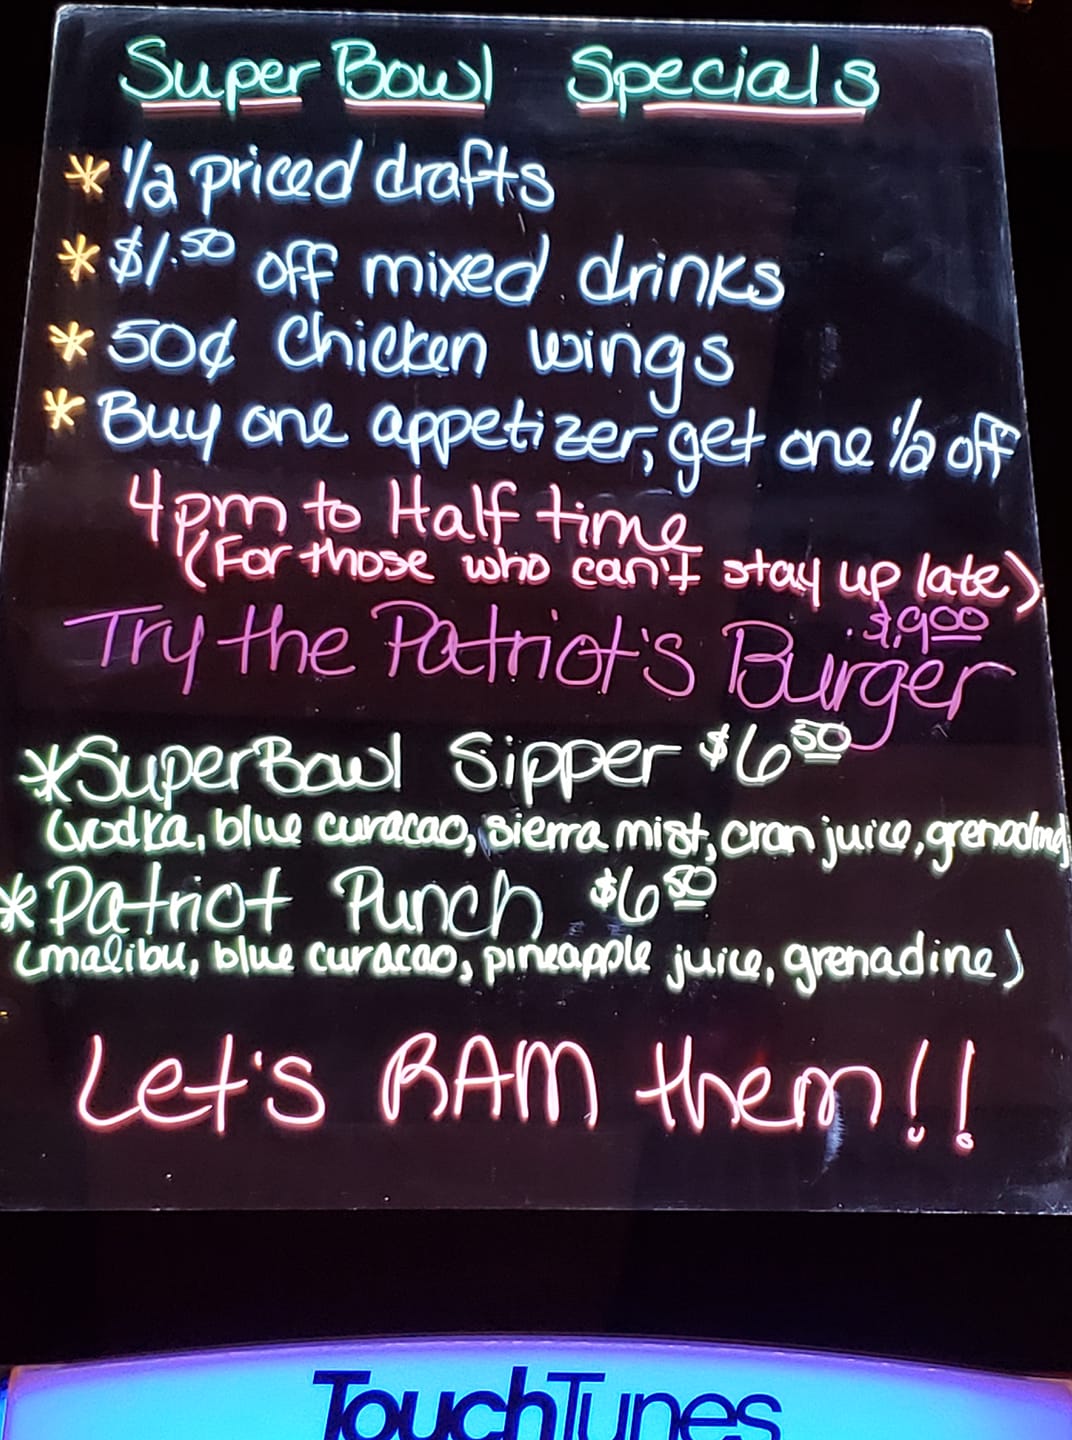 Super Bowl Specials
* 1/2 priced drafts
* $1.50 off mixed drinks
* 50¢ Chicken wings
* Buy one appetizer, get one 1/2 off
4pm to Half time
(For those who can't stay up late)
$9.00
Try the Patriot's Burger
*SuperBowl Sipper $6 50
(vodka, blue curacao, sierra mist, cran juice, grenadine)
*Patriot Punch $6 50
(malibu, blue curacao, pineapple juice, grenadine)
Let's RAM them!!
TouchTunes